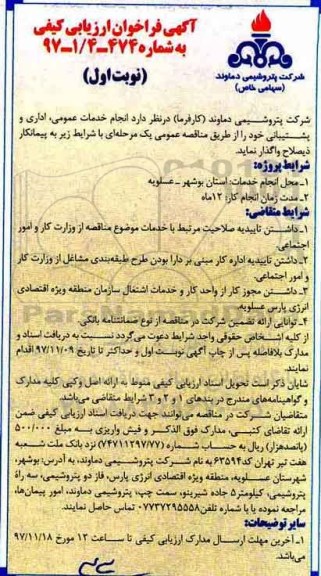 آگهی فراخوان ارزیابی کیفی
به شماره ۴۷۴-۱/۴-۹۷
(نوبت اول)
شرکت پتروشیمی دماوند
(سهامی خاص)
شرکت پتروشیمی دماوند (کارفرما) درنظر دارد انجام خدمات عمومی، اداری و
پشتیبانی خود را از طریق مناقصه عمومی یک مرحله‌ای با شرایط زیر به پیمانکار
ذیصلاح واگذار نماید.
شرایط پروژه:
۱ـ محل انجام خدمات: استان بوشهر ـ عسلویه
۲ـ مدت زمان انجام کار: ۱۲ماه
شرایط متقاضی:
۱ـ داشتن تاییدیه صلاحیت مرتبط با خدمات موضوع مناقصه از وزارت کار و امور
اجتماعی.
۲ـ داشتن تاییدیه اداره کار مبنی بر دارا بودن طرح طبقه‌بندی مشاغل از وزارت کار
و امور اجتماعی.
۳ـ داشتن مجوز کار از واحد کار و خدمات اشتغال سازمان منطقه ویژه اقتصادی
انرژی پارس عسلویه.
۴ـ توانایی ارائه تضمین شرکت در مناقصه از نوع ضمانتنامه بانکی.
از کلیه اشخاص حقوقی واجد شرایط دعوت می‌گردد نسبت به دریافت اسناد و
مدارک بلافاصله پس از چاپ آگهی نوبت اول و حداکثر تا تاریخ ۹۷/۱۱/۰۹ اقدام
نمایند.
شایان ذکر است تحویل اسناد ارزیابی کیفی منوط به ارائه اصل وکپی کلیه مدارک
و گواهینامه‌های مندرج در بندهای ۱ و ۲ و ۳ شرایط متقاضی می‌باشد.
متقاضیان شرکت در مناقصه می‌توانند جهت دریافت اسناد ارزیابی کیفی ضمن
ارائه تقاضای کتبی، مدارک فوق الذکر و فیش واریزی به مبلغ ۵۰۰/۰۰۰
(پانصدهزار) ریال به حساب شماره (۷۴۷۱۱۲۹۷/۷۷) نزد بانک ملت شعبه
هفت تیر تهران کد۶۳۵۹۴ به نام شرکت پتروشیمی دماوند، به آدرس: بوشهر،
شهرستان عسلویه، منطقه ویژه اقتصادی انرژی پارس، فاز دو پتروشیمی، سه راه
پتروشیمی، کیلومتر۵ جاده شیرینو، سمت چپ، پتروشیمی دماوند، امور پیمان‌ها،
مراجعه نموده یا با شماره تلفن۰۷۷۳۷۲۹۵۵۵۸ تماس حاصل نمایند.
سایر توضیحات:
۱ـ آخرین مهلت ارسال مدارک ارزیابی کیفی تا ساعت ۱۲ مورخ ۹۷/۱۱/۱۸
می‌باشد.